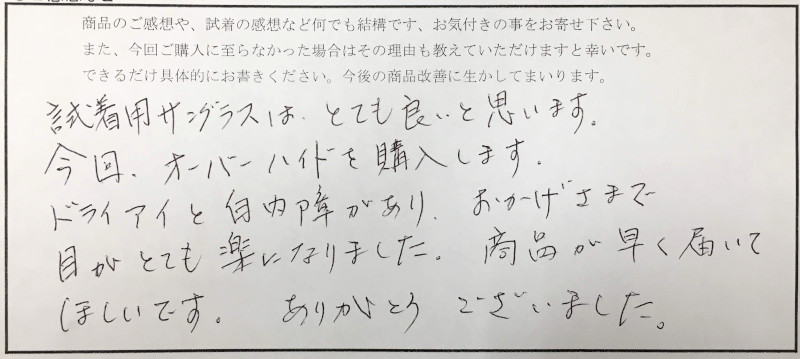 商品のご感想や、試着の感想など何でも結構です、お気付きの事をお寄せ下さい。
また、今回ご購入に至らなかった場合はその理由も教えていただけますと幸いです。
できるだけ具体的にお書きください。今後の商品改善に生かしてまいります。
試着用サングラスは、とても良いと思います。
今回、オーバーハイドを購入します.
ドライアイと白内障があり、おかげさまで
目がとても楽になりました。商品が早く届いて
ほしいです。ありがとうございました。